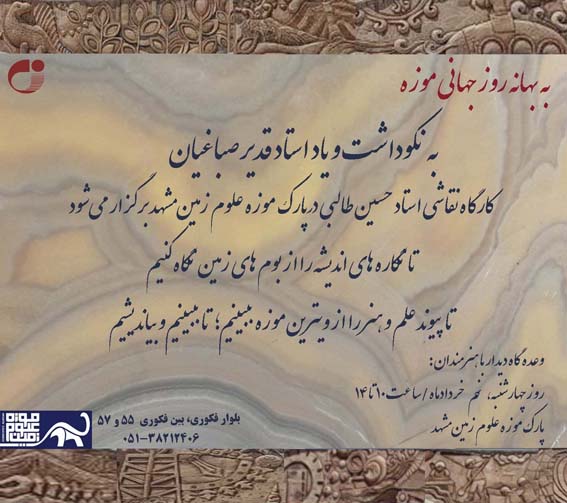 به بهانه روز جهانی موزه
به نکوداشت و یاد استاد قدیر صباغیان
کارگاه نقاشی استاد حسین طالبی در پارک موزه علوم زمین مشهد برگزار می‌شود
تا نگاره های اندیشه را از بوم های زمین نگاه کنیم
تا پیوند علم و هنر را از ویترین موزه ببینیم؛ تا ببینیم و بیاندیشیم
وعده گاه دیدار با هنرمندان:
روز چهارشنبه، نهم خردادماه /ساعت ۱۰ تا ۱۴
پارک موزه علوم زمین مشهد
بلوار فکوری، بین فکوری ۵۵ و ۵۷
۰۵۱-۳۸۲۱۲۴۰۶
موزه
علوم
زمین